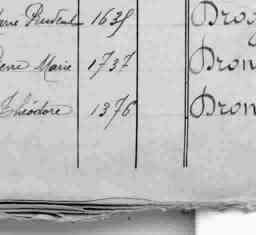 Prudent 1635 Drog
Pierre Marie 1737 Dron
Théodore 1376 Dron